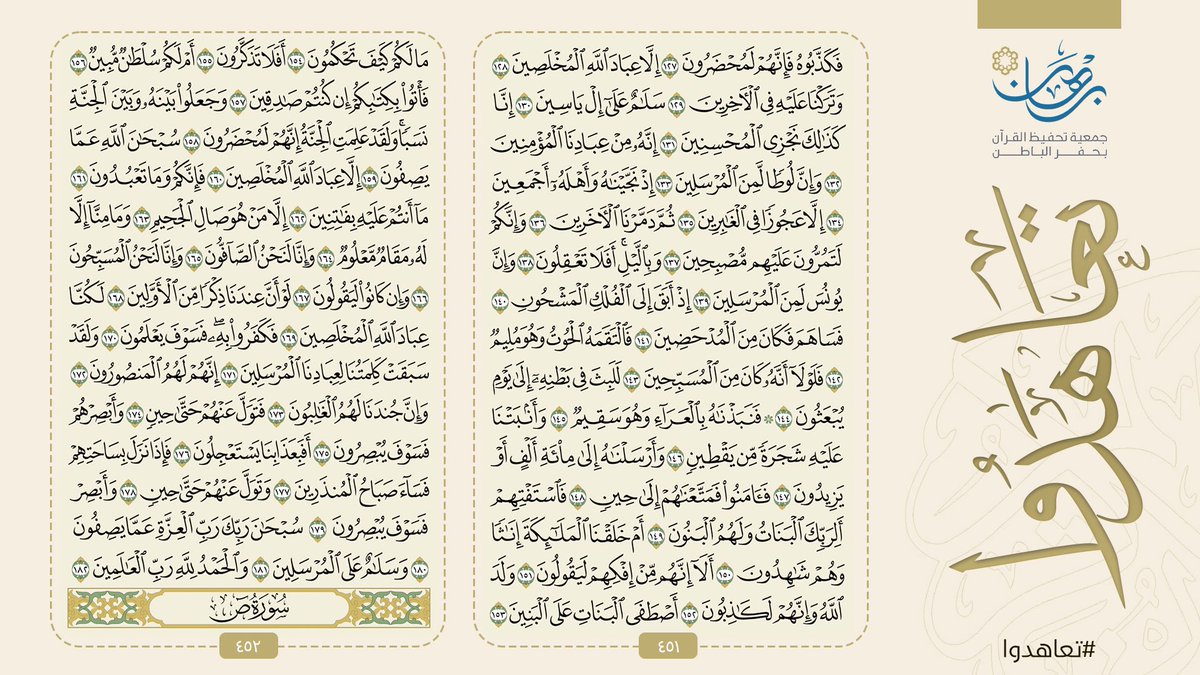 برهان
جمعية تحفيظ القرآن
بحفر الباطن
تعاهدوا
#تعاهدوا
فَكَذَّبُوهُ فَإِنَّهُمْ لَمُحْضَرُونَ ١٢٧ إِلَّا عِبَادَ ٱللَّهِ ٱلْمُخْلَصِينَ ١٢٨
وَتَرَكْنَا عَلَيْهِ فِي ٱلْأٓخِرِينَ ١٢٩ سَلَٰمٌ عَلَىٰٓ إِلْ يَاسِينَ ١٣٠ إِنَّا
كَذَٰلِكَ نَجْزِي ٱلْمُحْسِنِينَ ١٣١ إِنَّهُۥ مِنْ عِبَادِنَا ٱلْمُؤْمِنِينَ
١٣٢ وَإِنَّ لُوطًا لَّمِنَ ٱلْمُرْسَلِينَ ١٣٣ إِذْ نَجَّيْنَٰهُ وَأَهْلَهُۥٓ أَجْمَعِينَ
١٣٤ إِلَّا عَجُوزًا فِي ٱلْغَٰبِرِينَ ١٣٥ ثُمَّ دَمَّرْنَا ٱلْأٓخَرِينَ ١٣٦ وَإِنَّكُمْ
لَتَمُرُّونَ عَلَيْهِم مُّصْبِحِينَ ١٣٧ وَبِٱلَّيْلِۚ أَفَلَا تَعْقِلُونَ ١٣٨ وَإِنَّ
يُونُسَ لَمِنَ ٱلْمُرْسَلِينَ ١٣٩ إِذْ أَبَقَ إِلَى ٱلْفُلْكِ ٱلْمَشْحُونِ ١٤٠
فَسَاهَمَ فَكَانَ مِنَ ٱلْمُدْحَضِينَ ١٤١ فَٱلْتَقَمَهُ ٱلْحُوتُ وَهُوَ مُلِيمٌ
١٤٢ فَلَوْلَآ أَنَّهُۥ كَانَ مِنَ ٱلْمُسَبِّحِينَ ١٤٣ لَلَبِثَ فِي بَطْنِهِۦٓ إِلَىٰ يَوْمِ
يُبْعَثُونَ ١٤٤ ۞ فَنَبَذْنَٰهُ بِٱلْعَرَآءِ وَهُوَ سَقِيمٌ ١٤٥ وَأَنۢبَتْنَا
عَلَيْهِ شَجَرَةً مِّن يَقْطِينٍ ١٤٦ وَأَرْسَلْنَٰهُ إِلَىٰ مِا۟ئَةِ أَلْفٍ أَوْ
يَزِيدُونَ ١٤٧ فَـَٔامَنُوا۟ فَمَتَّعْنَٰهُمْ إِلَىٰ حِينٍ ١٤٨ فَٱسْتَفْتِهِمْ
أَلِرَبِّكَ ٱلْبَنَاتُ وَلَهُمُ ٱلْبَنُونَ ١٤٩ أَمْ خَلَقْنَا ٱلْمَلَٰٓئِكَةَ إِنَٰثًا
وَهُمْ شَٰهِدُونَ ١٥٠ أَلَآ إِنَّهُم مِّنْ إِفْكِهِمْ لَيَقُولُونَ ١٥١ وَلَدَ
ٱللَّهُ وَإِنَّهُمْ لَكَٰذِبُونَ ١٥٢ أَصْطَفَى ٱلْبَنَاتِ عَلَى ٱلْبَنِينَ ١٥٣
٤٥١
مَا لَكُمْ كَيْفَ تَحْكُمُونَ ١٥٤ أَفَلَا تَذَكَّرُونَ ١٥٥ أَمْ لَكُمْ سُلْطَٰنٌ مُّبِينٌ ١٥٦
فَأْتُوا۟ بِكِتَٰبِكُمْ إِن كُنتُمْ صَٰدِقِينَ ١٥٧ وَجَعَلُوا۟ بَيْنَهُۥ وَبَيْنَ ٱلْجِنَّةِ
نَسَبًاۚ وَلَقَدْ عَلِمَتِ ٱلْجِنَّةُ إِنَّهُمْ لَمُحْضَرُونَ ١٥٨ سُبْحَٰنَ ٱللَّهِ عَمَّا
يَصِفُونَ ١٥٩ إِلَّا عِبَادَ ٱللَّهِ ٱلْمُخْلَصِينَ ١٦٠ فَإِنَّكُمْ وَمَا تَعْبُدُونَ ١٦١
مَآ أَنتُمْ عَلَيْهِ بِفَٰتِنِينَ ١٦٢ إِلَّا مَنْ هُوَ صَالِ ٱلْجَحِيمِ ١٦٣ وَمَا مِنَّآ إِلَّا
لَهُۥ مَقَامٌ مَّعْلُومٌ ١٦٤ وَإِنَّا لَنَحْنُ ٱلصَّآفُّونَ ١٦٥ وَإِنَّا لَنَحْنُ ٱلْمُسَبِّحُونَ
١٦٦ وَإِن كَانُوا۟ لَيَقُولُونَ ١٦٧ لَوْ أَنَّ عِندَنَا ذِكْرًا مِّنَ ٱلْأَوَّلِينَ ١٦٨ لَكُنَّا
عِبَادَ ٱللَّهِ ٱلْمُخْلَصِينَ ١٦٩ فَكَفَرُوا۟ بِهِۦۖ فَسَوْفَ يَعْلَمُونَ ١٧٠ وَلَقَدْ
سَبَقَتْ كَلِمَتُنَا لِعِبَادِنَا ٱلْمُرْسَلِينَ ١٧١ إِنَّهُمْ لَهُمُ ٱلْمَنصُورُونَ ١٧٢
وَإِنَّ جُندَنَا لَهُمُ ٱلْغَٰلِبُونَ ١٧٣ فَتَوَلَّ عَنْهُمْ حَتَّىٰ حِينٍ ١٧٤ وَأَبْصِرْهُمْ
فَسَوْفَ يُبْصِرُونَ ١٧٥ أَفَبِعَذَابِنَا يَسْتَعْجِلُونَ ١٧٦ فَإِذَا نَزَلَ بِسَاحَتِهِمْ
فَسَآءَ صَبَاحُ ٱلْمُنذَرِينَ ١٧٧ وَتَوَلَّ عَنْهُمْ حَتَّىٰ حِينٍ ١٧٨ وَأَبْصِرْ
فَسَوْفَ يُبْصِرُونَ ١٧٩ سُبْحَٰنَ رَبِّكَ رَبِّ ٱلْعِزَّةِ عَمَّا يَصِفُونَ
١٨٠ وَسَلَٰمٌ عَلَى ٱلْمُرْسَلِينَ ١٨١ وَٱلْحَمْدُ لِلَّهِ رَبِّ ٱلْعَٰلَمِينَ ١٨٢
سُورَةُ صٓ
٤٥٢